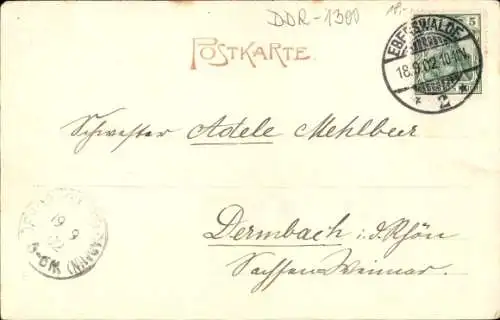 DDR-1300
18,-
POSTKARTE.
5
EBERSWALDE
18.9.02.10-11
* 2 *
Schwester Adele Mehlbeer
19
9
02
5-6N
Dermbach i. d. Rhön
Sachsen Weimar.